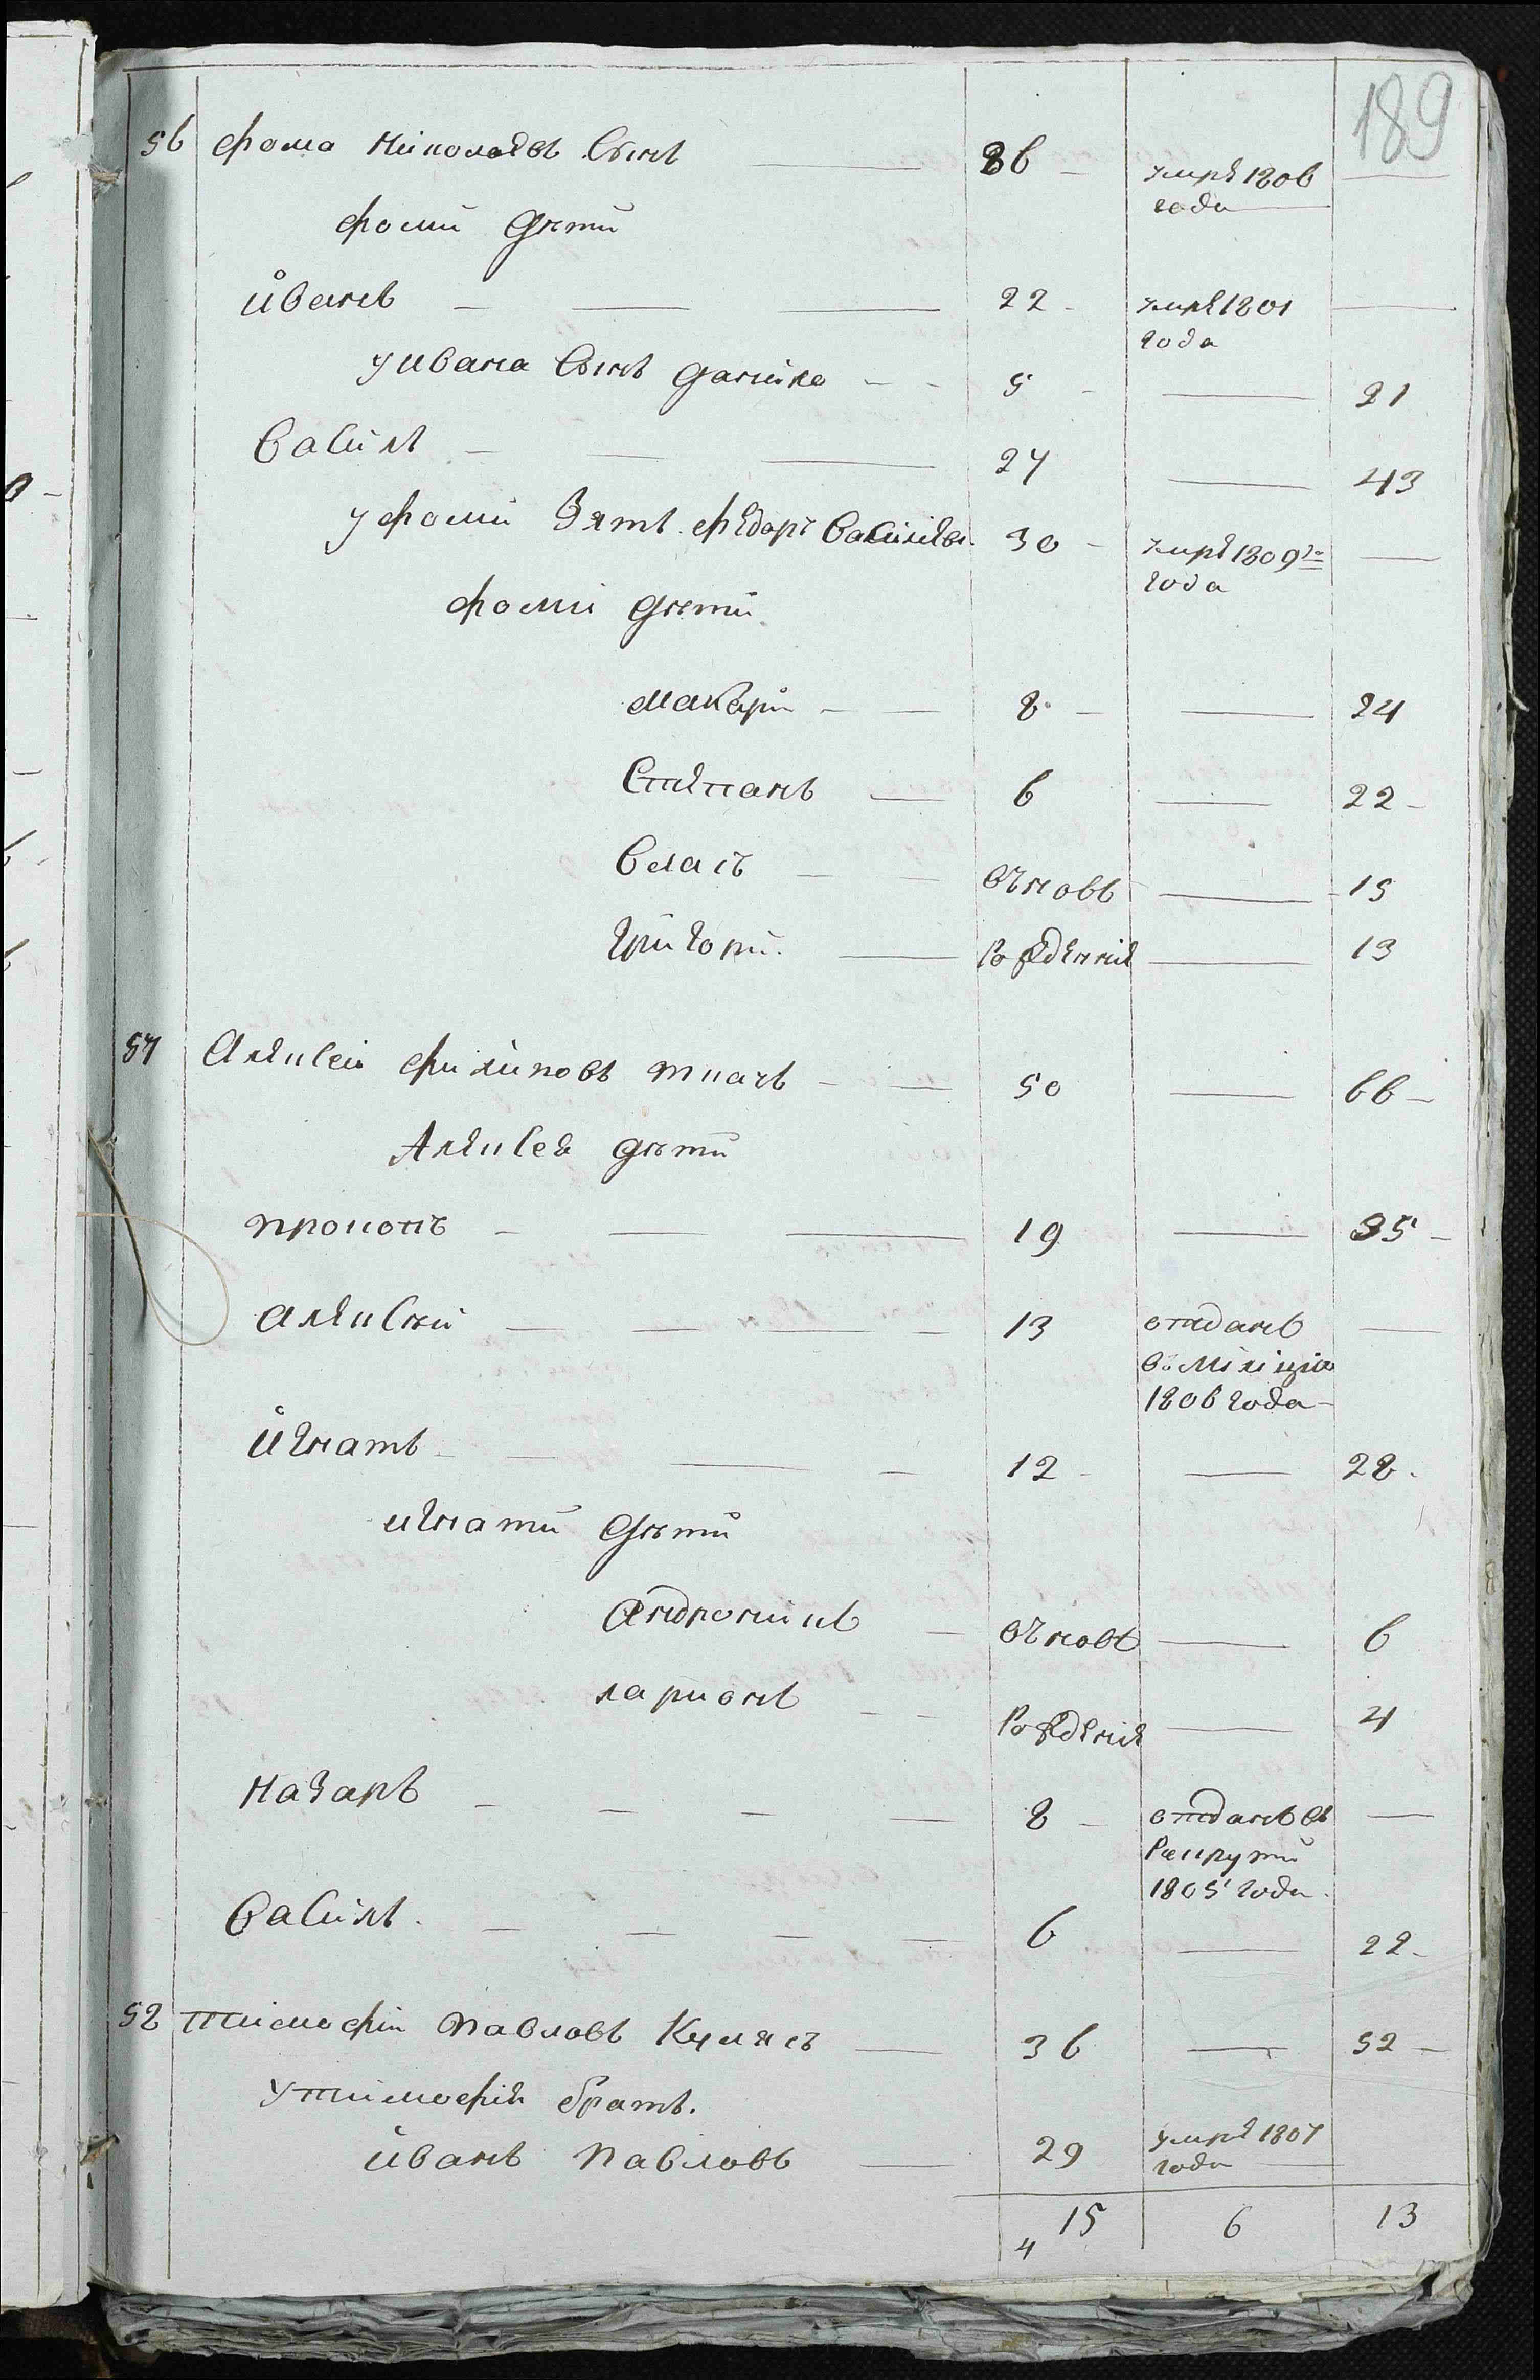 189
56 Фома Николаевъ Сынъ 86 умре 1806
года
Фоми Дѣти
Иванъ 22 умре 1801
года
у Ивана Сынъ Данило 5 21
Василь 27 43
у Фоми Зять Федоръ Василиев. 30 умре 1809го
года
Фоми Дѣти
Макари 8 24
Степанъ 6 22
Власъ въновь 15
Григори рожденние 13
57 Алексеи Филиповъ Ткачъ 50 66
Алексея Дѣти
Прокопъ 19 35
Алексѣй 13 отданъ
въ Милицию
1806 года
Игнатъ 12 28
Игнати Дѣти
Андроникъ въновь 6
Ларионъ рождение 4
Назаръ 8 отданъ въ
Рекрути
1805 года
Василь 6 22
58 Тимофи Павловъ Кулясъ 36 52
у Тимофия Братъ
Иванъ Павловъ 29 умре 1807
года
4 15 6 13